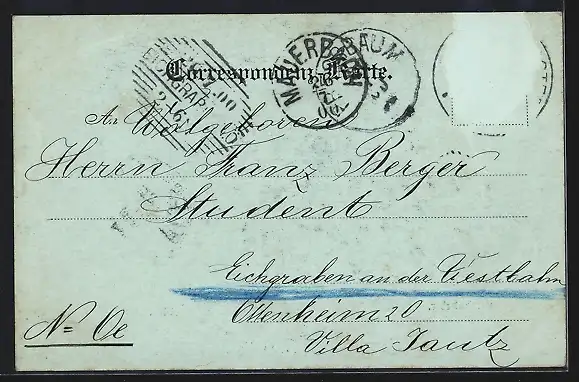 Correspondenz-Karte.
MAUERBACH
BAUM
TELEGRAPH
An Wolgeboren
Herrn Franz Berger
Student
Eichgraben an der Westbahn
Ottenheim 20
Villa Jautz
N= Oe